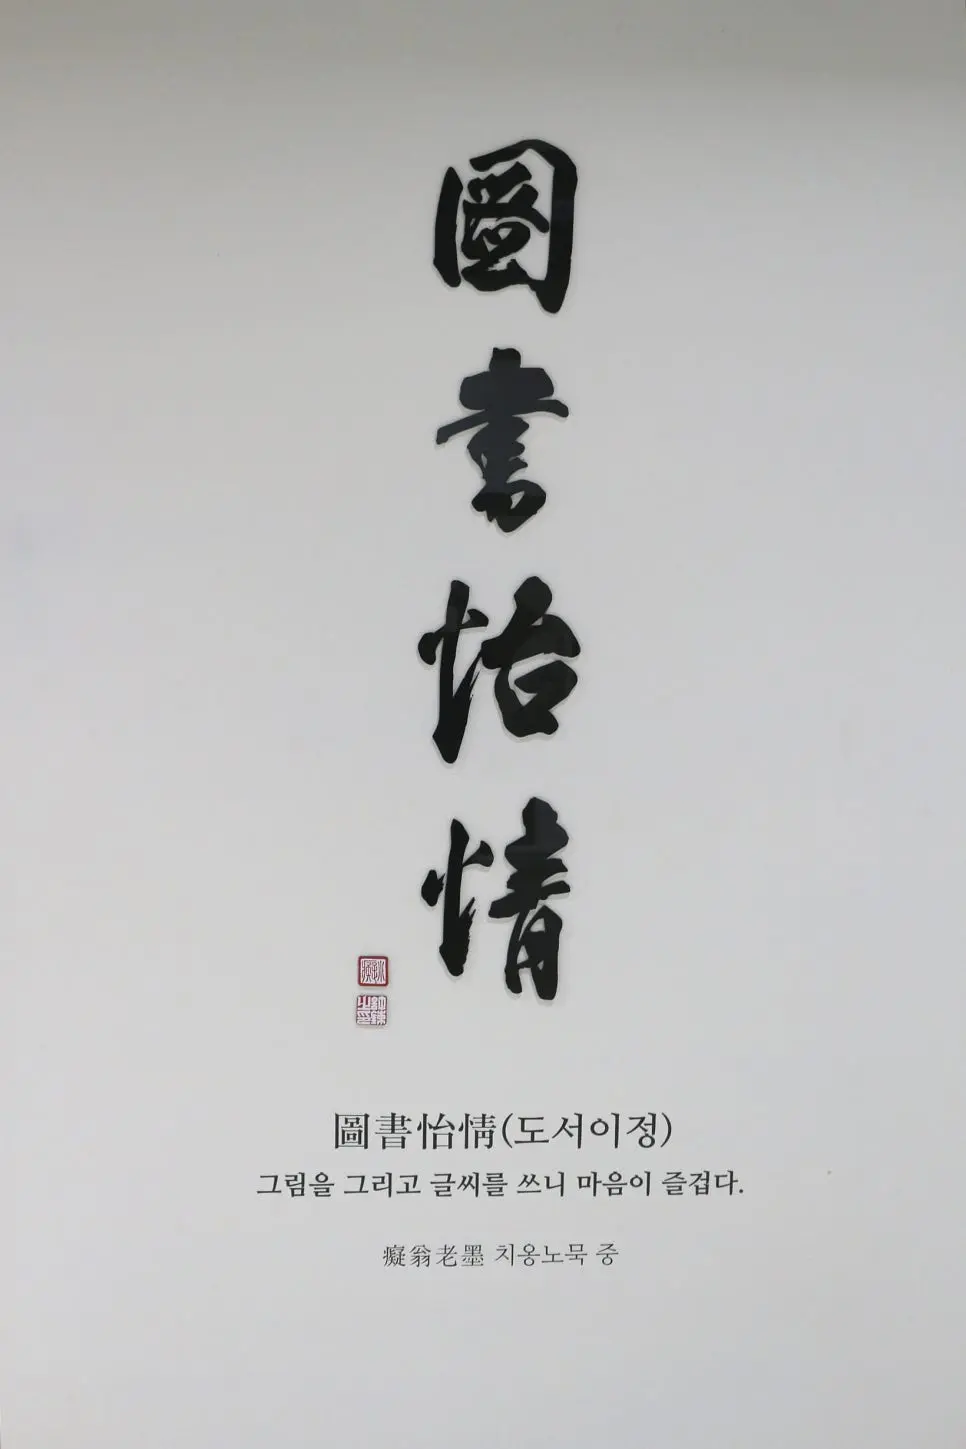 圖書怡情
圖書怡情(도서이정)
그림을 그리고 글씨를 쓰니 마음이 즐겁다.
癡翁老墨 치옹노묵 중